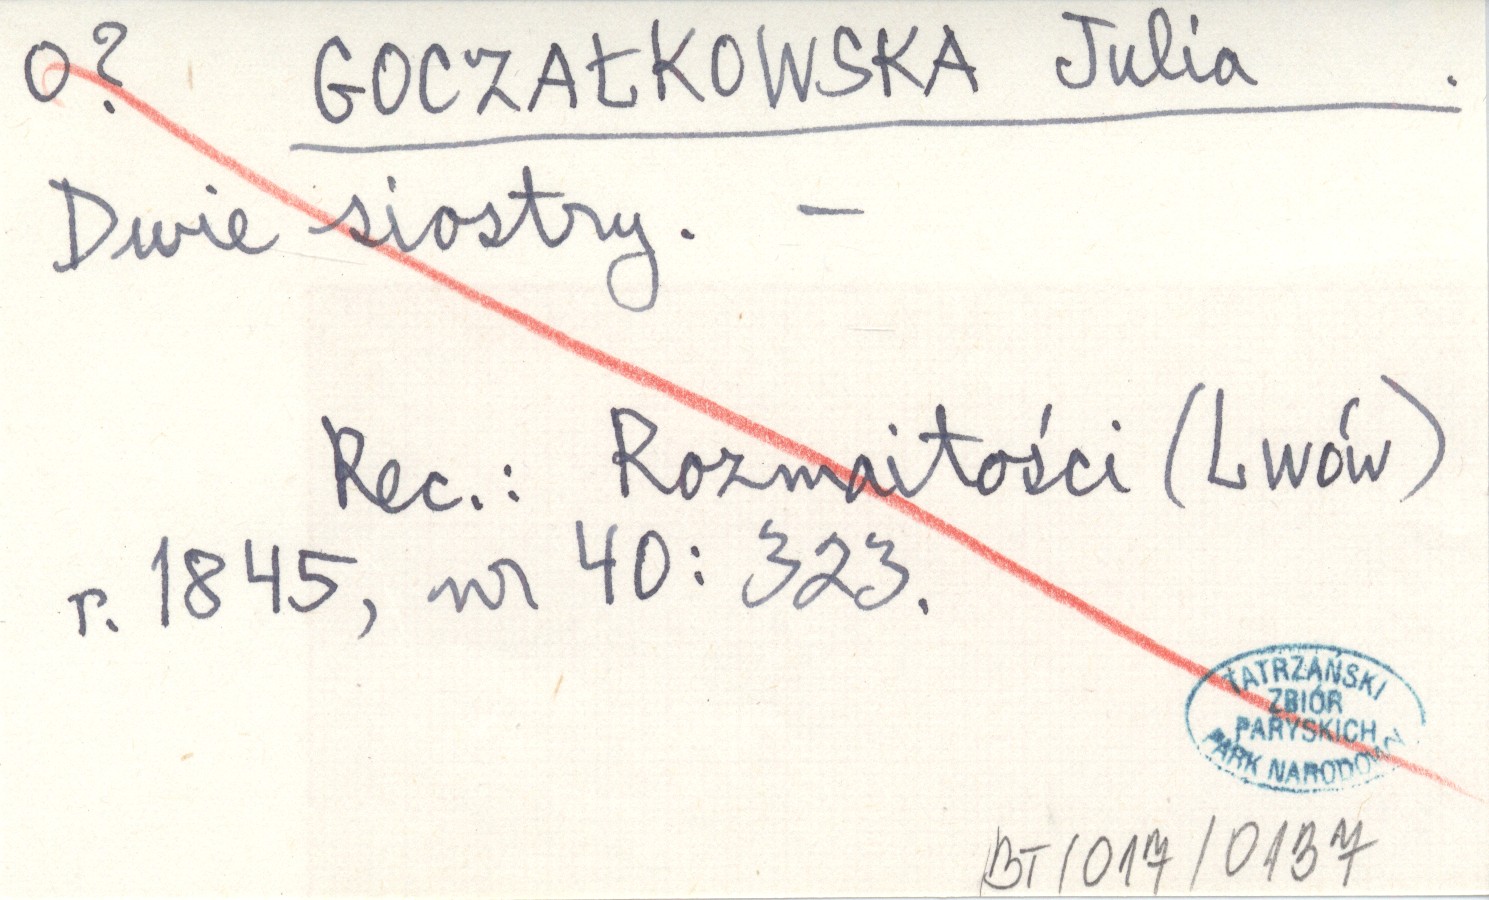 O? GOCZAŁKOWSKA Julia .
Dwie siostry. —
Rec.: Rozmaitości (Lwów)
r. 1845, nr 40: 323.
TATRZAŃSKI
ZBIÓR
PARYSKICH
PARK NARODOWY
BT/017/0137